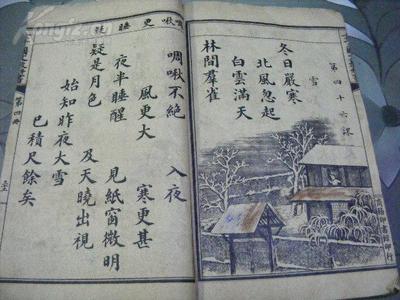 第四十六課
雪
冬日嚴寒
北風忽起
白雲滿天
林間羣雀
啁啾不絕 入夜
風更大 寒更甚
夜半睡醒 見紙窗微明
疑是月色 及天曉出視
始知昨夜大雪
已積尺餘矣
第四冊